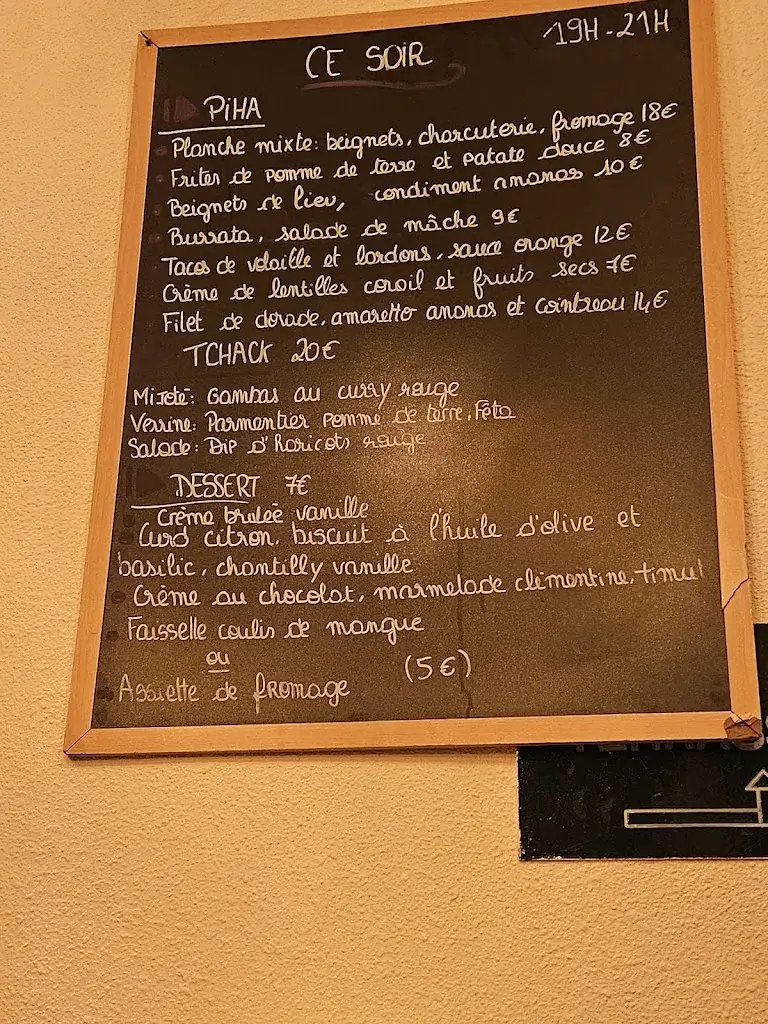 CE SOIR
19H-21H
PiHA
Planche mixte: beignets, charcuterie, fromage 18€
Frites de pomme de terre et patate douce 8€
Beignets de lieu, condiment ananas 10€
Burrata, salade de mâche 9€
Tacos de volaille et lardons, sauce orange 12€
Crème de lentilles corail et fruits secs 7€
Filet de dorade, amaretto ananas et cointreau 14€
TCHACK 20€
Mijoté: Gambas au curry rouge
Verrine: Parmentier pomme de terre, Féta
Salade: DIP d'haricots rouge
DESSERT 7€
Crème brulée vanille
Curd citron, biscuit à l'huile d'olive et
basilic, chantilly vanille
Crème au chocolat, marmelade clémentine, timut
Faisselle coulis de mangue
ou
Assiette de fromage (5€)